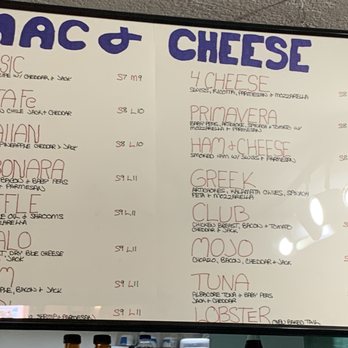 MAC & CHEESE
SSIC
W/ CHEDDAR & JACK
S7 M9
TA FE
CHILE JACK & CHEDDAR
S8 L10
AIIAN
PINEAPPLE CHEDDAR & JACK
S8 L10
BONARA
BACON & BABY PEAS
& PARMESAN
S9 L11
FFLE
OIL & SHROOMS
ZARELLA
S9 L11
ALO
DRY BLUE CHEESE
JACK
S9 L11
M
PLE, BACON & JACK
S9 L11
SHRIMP & PARMESAN
S9 L11
4 CHEESE
SWISS, RICOTTA, PARMESAN & MOZZARELLA
PRIMAVERA
BABY PEAS, ARTICHOKE, SPINACH & TOMATO W/
MOZZARELLA & PARMESAN
HAM & CHEESE
SMOKED HAM W/ SWISS & PARMESAN
GREEK
ARTICHOKES, KALAMATA OLIVES, SPINACH
FETA & MOZZARELLA
CLUB
CHICKEN BREAST, BACON & TOMATO
CHEDDAR & JACK
MOJO
CHORIZO, BACON, CHEDDAR & JACK
TUNA
ALBACORE TUNA & BABY PEAS
JACK & CHEDDAR
LOBSTER
BAKED TAIL